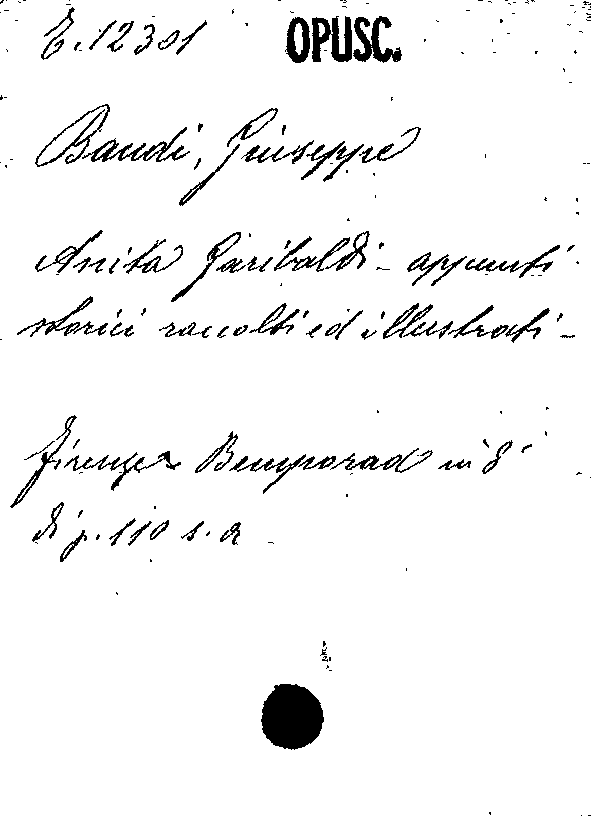 E.12301 OPUSC.
Bandi, Giuseppe
Anita Garibaldi - appunti
storici raccolti ed illustrati -
Firenze Bemporad in 8°
di p. 110 s. a.